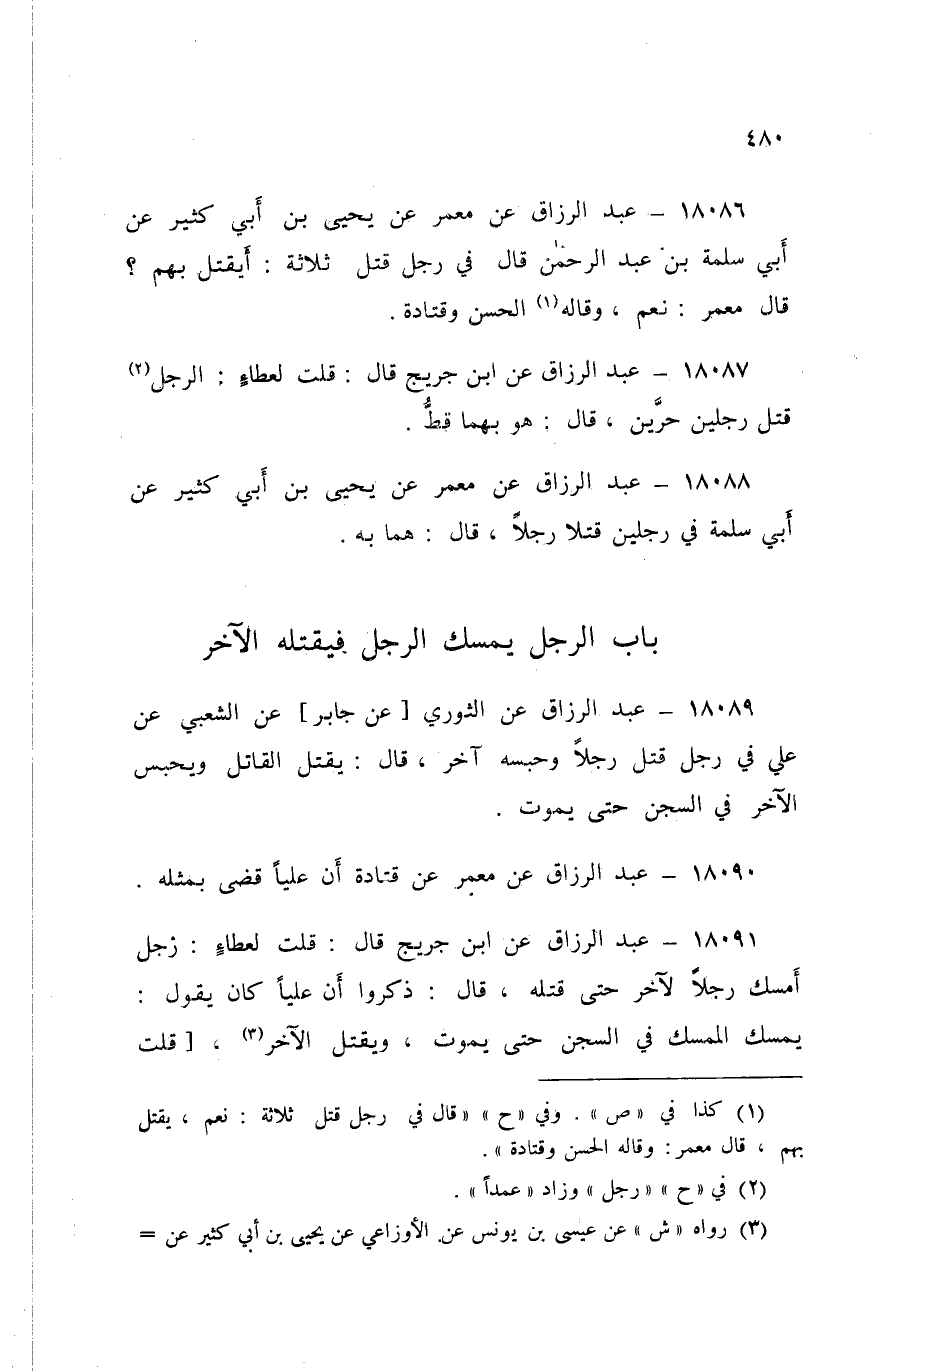 ٤٨٠
١٨٠٨٦ – عبد الرزاق عن معمر عن يحيى بن أَبي كثير عن
أَبي سلمة بن عبد الرحمٰن قال في رجل قتل ثلاثة : أَيقتل بهم ؟
قال معمر : نعم ، وقاله(١) الحسن وقتادة .
١٨٠٨٧ – عبد الرزاق عن ابن جريج قال : قلت لعطاءٍ : الرجل(٢)
قتل رجلين حرَّين ، قال : هو بهما قطُّ .
١٨٠٨٨ – عبد الرزاق عن معمر عن يحيى بن أَبي كثير عن
أَبي سلمة في رجلين قتلا رجلاً ، قال : هما به .
باب الرجل يمسك الرجل فيقتله الآخر
١٨٠٨٩ – عبد الرزاق عن الثوري [ عن جابر ] عن الشعبي عن
علي في رجل قتل رجلاً وحبسه آخر ، قال : يقتل القاتل ويحبس
الآخر في السجن حتى يموت .
١٨٠٩٠ – عبد الرزاق عن معمر عن قتادة أَن علياً قضى بمثله .
١٨٠٩١ – عبد الرزاق عن ابن جريج قال : قلت لعطاءٍ : رجل
أَمسك رجلاً لآخر حتى قتله ، قال : ذكروا أَن علياً كان يقول :
يمسك الممسك في السجن حتى يموت ، ويقتل الآخر(٣) ، [ قلت
(١) كذا في « ص » . وفي « ح » « قال في رجل قتل ثلاثة : نعم ، يقتل
بهم ، قال معمر : وقاله الحسن وقتادة » .
(٢) في « ح » « رجل » وزاد « عمداً » .
(٣) رواه « ش » عن عيسى بن يونس عن الأوزاعي عن يحيى بن أبي كثير عن =